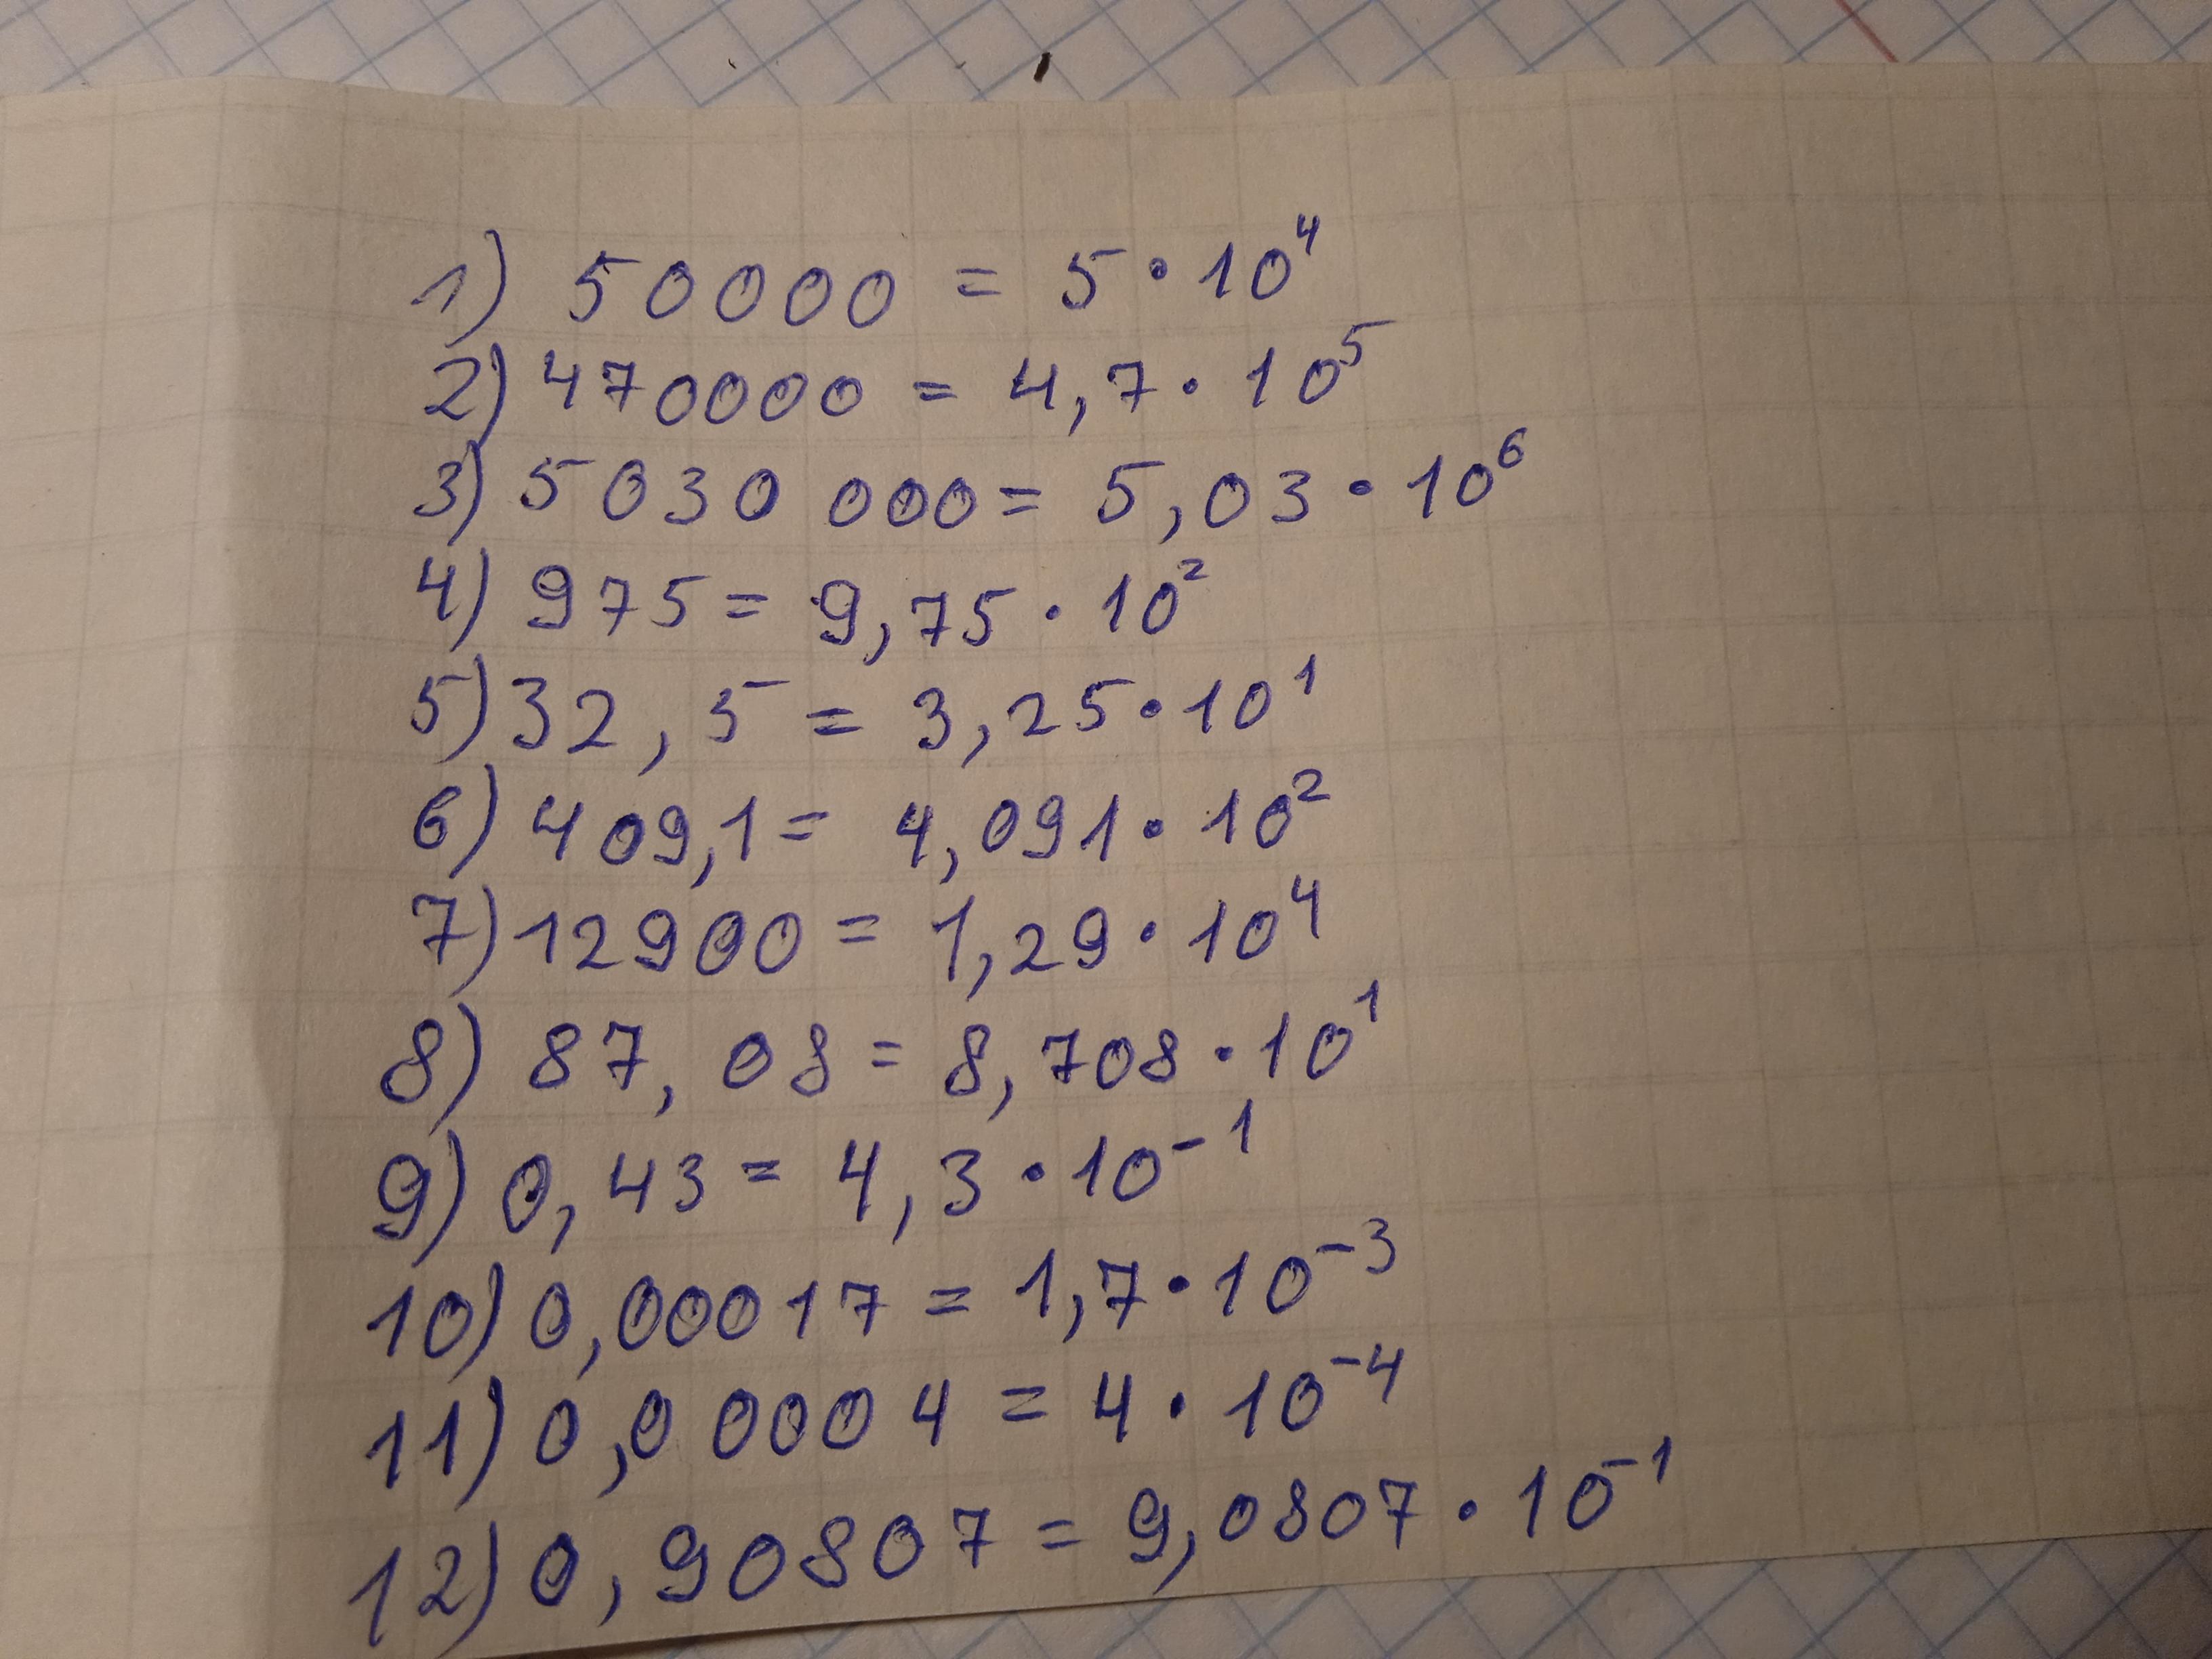 1) 50000 = 5 · 10⁴
2) 470000 = 4,7 · 10⁵
3) 5030 000 = 5,03 · 10⁶
4) 975 = 9,75 · 10²
5) 32,5 = 3,25 · 10¹
6) 409,1 = 4,091 · 10²
7) 12900 = 1,29 · 10⁴
8) 87,08 = 8,708 · 10¹
9) 0,43 = 4,3 · 10⁻¹
10) 0,00017 = 1,7 · 10⁻³
11) 0,00004 = 4 · 10⁻⁴
12) 0,90807 = 9,0807 · 10⁻¹